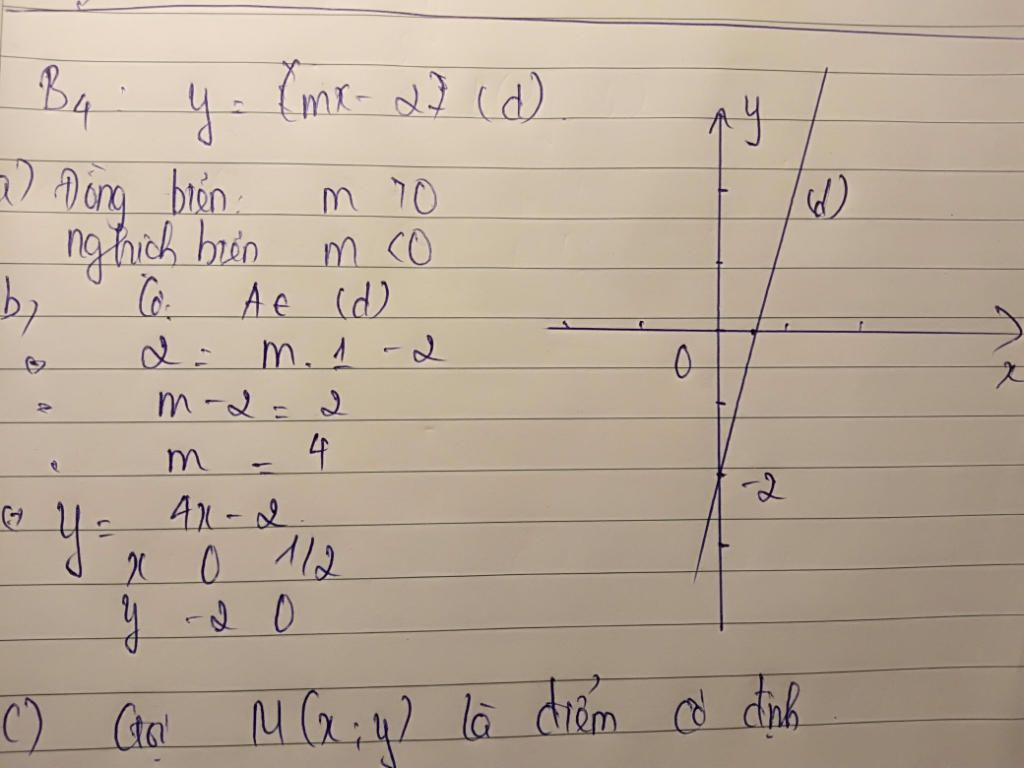 B4: y = {mx - 2} (d)
a) Đồng biến: m > 0
nghịch biến m < 0
b, Có: A ∈ (d)
⇔ 2 = m. 1 - 2
= m - 2 = 2
m = 4
⇔ y = 4x - 2
x 0 1/2
y -2 0
c) Gọi M(x; y) là điểm cố định
y
(d)
0
x
-2